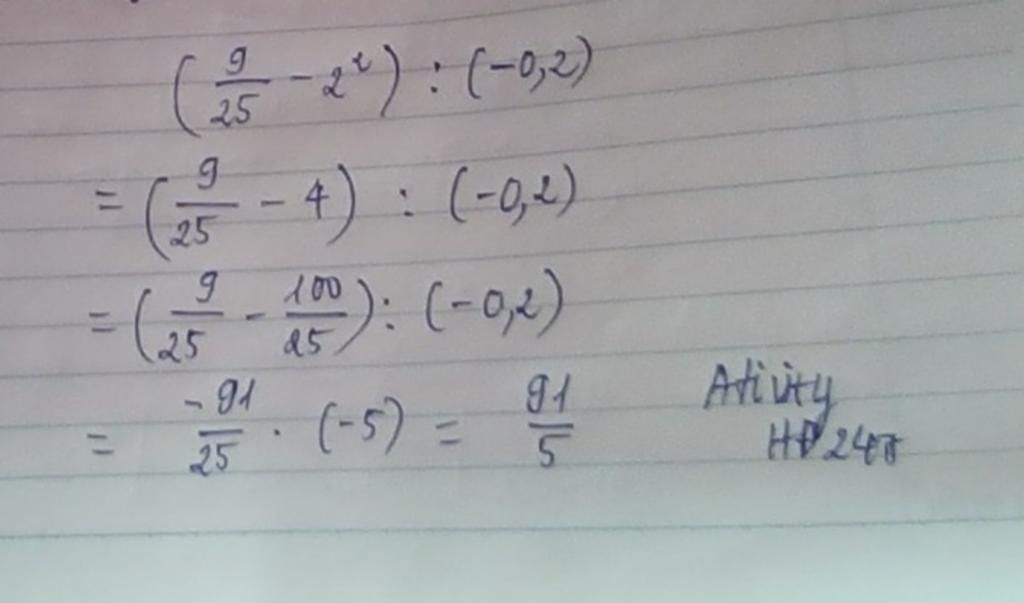 (9/25 - 2²) : (-0,2)
= (9/25 - 4) : (-0,2)
= (9/25 - 100/25) : (-0,2)
= -91/25 . (-5) = 91/5
Ativity